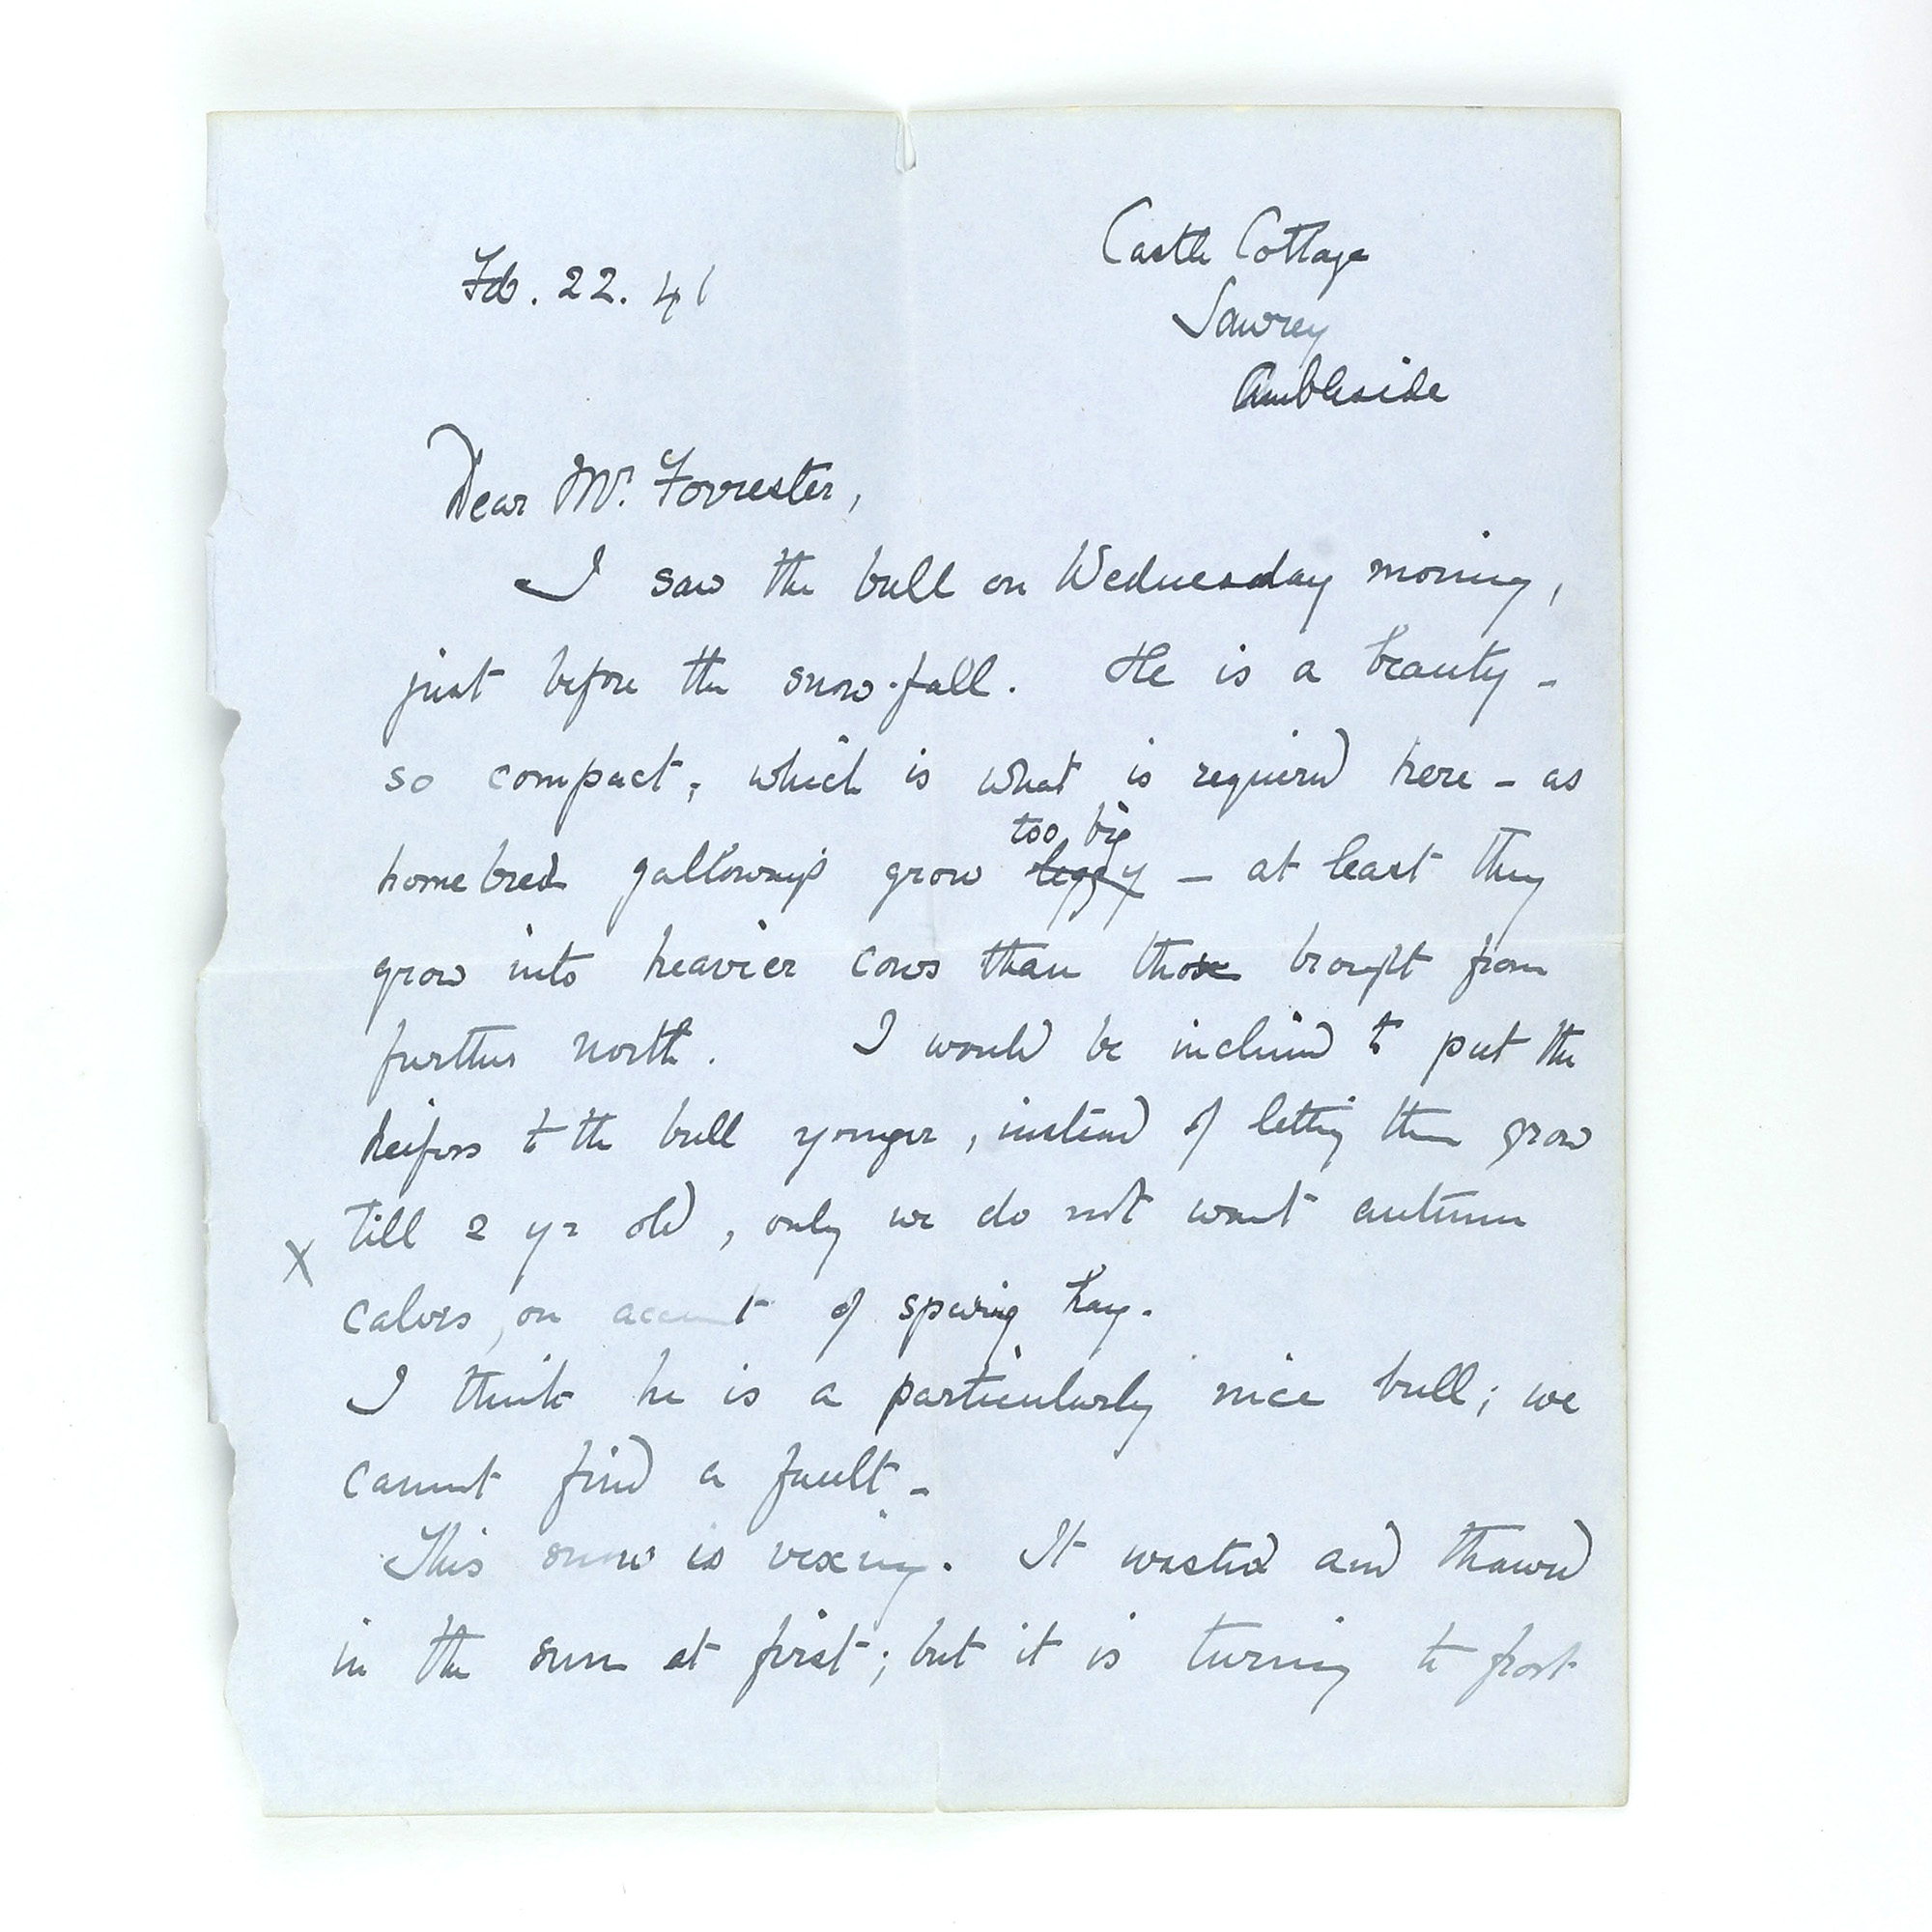 Feb. 22. 41
Castle Cottage
Sawrey
Ambleside
Dear Mr. Forrester,
I saw the bull on Wednesday morning,
just before the snow-fall. He is a beauty -
so compact, which is what is required here - as
too big
home bred galloways grow leggy - at least they
grow into heavier cows than those brought from
further north. I would be inclined to put the
heifers to the bull younger, instead of letting them grow
till 2 yr old, only we do not want autumn
X
calves, on account of sparing hay.
I think he is a particularly nice bull; we
cannot find a fault -
This snow is vexing. It wasted and thawed
in the sun at first; but it is turning to frost